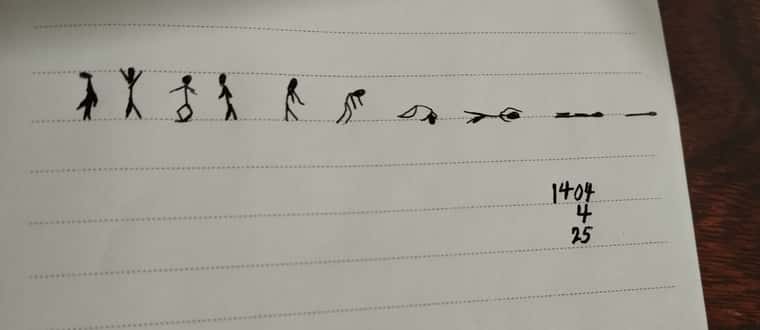 1404
4
25